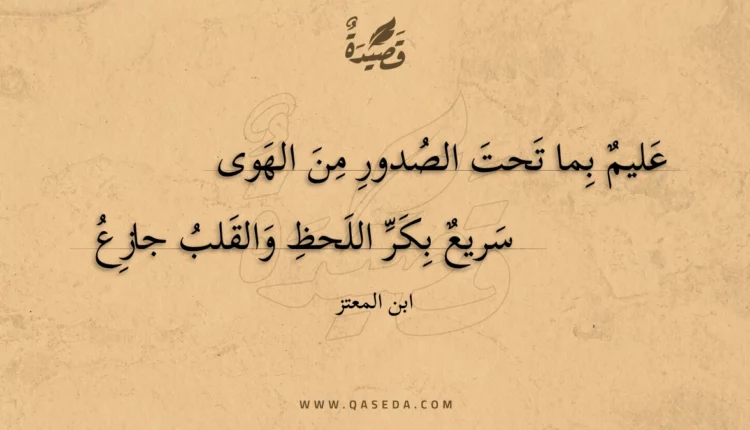 قَصِيدَةٌ
عَليمٌ بِما تَحتَ الصُدورِ مِنَ الهَوى
سَريعٌ بِكَرِّ اللَحظِ وَالقَلبُ جازِعُ
ابن المعتز
WWW.QASEDA.COM